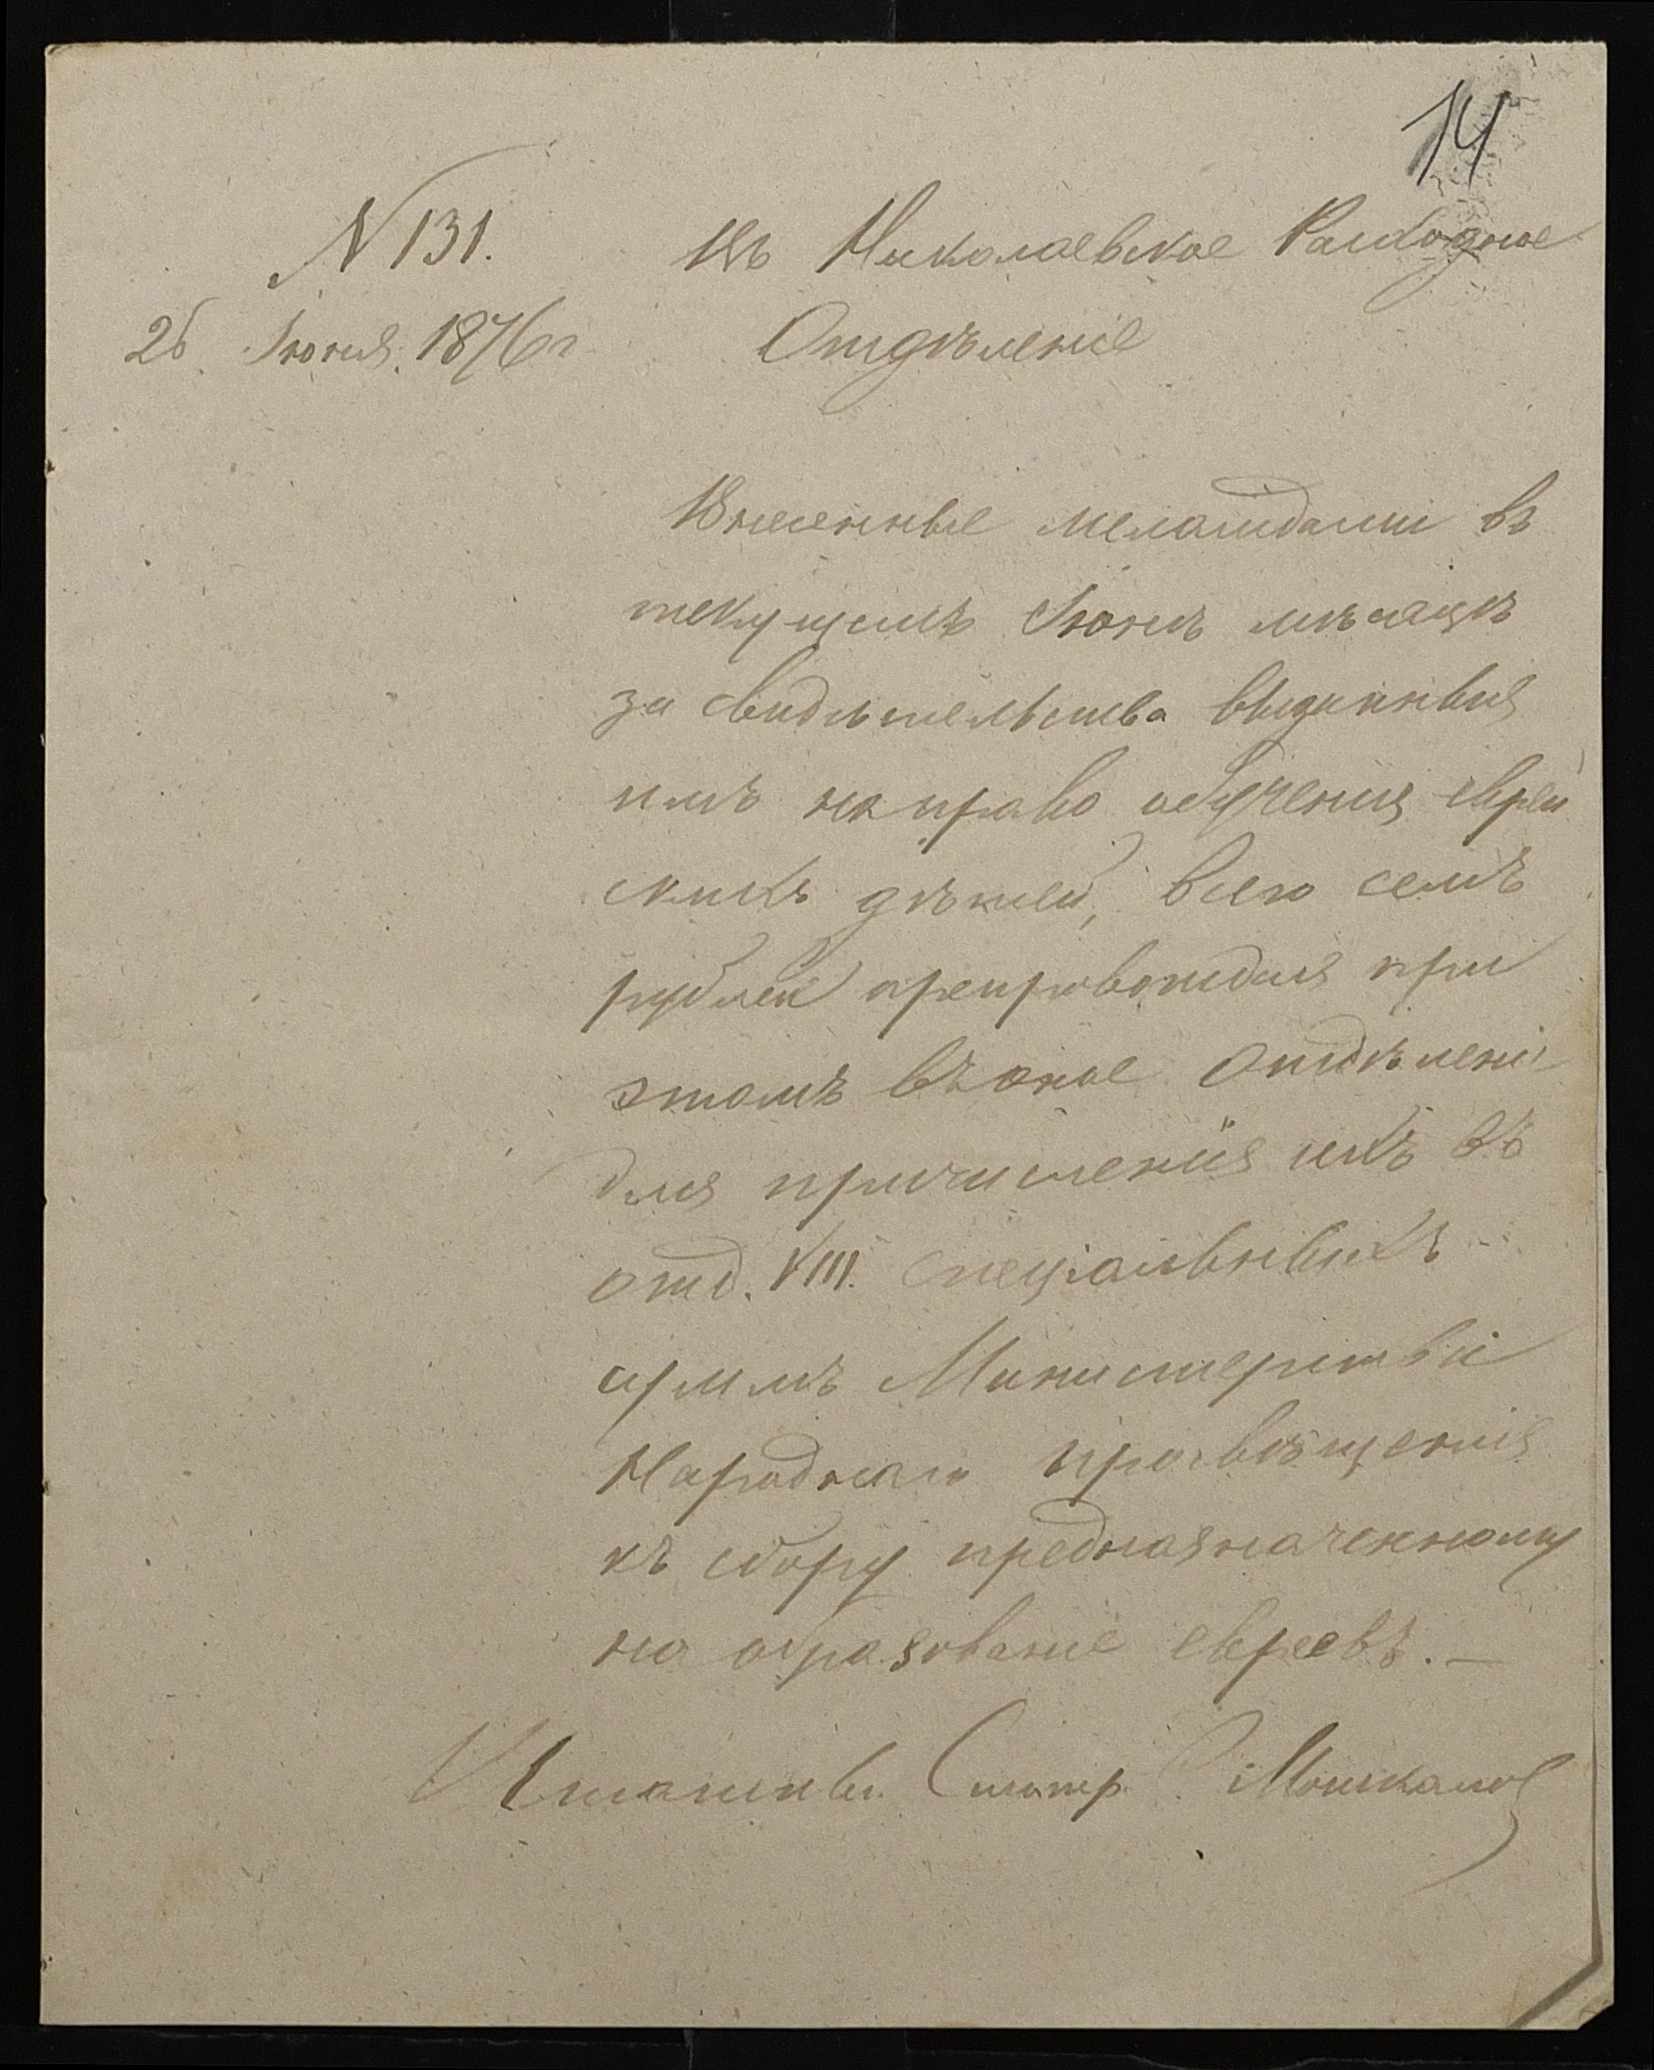 14
N 131.
26 Іюня 1876 г
Въ Николаевское Расходное
Отдѣленіе
Внесенные меламдами въ
текущемъ Іюнѣ мѣсяцѣ
за свидѣтельства выданныя
имъ на право обученія еврей
скихъ дѣтей, всего семь
рублей препровождая при
этомъ въ оное Отдѣлені
для причисленія ихъ въ
отд. VIII. спеціальныхъ
суммъ Министерства
Народнаго просвѣщенія
къ сбору предназначенному
на образованіе евреевъ. —
Штатный Смотр.